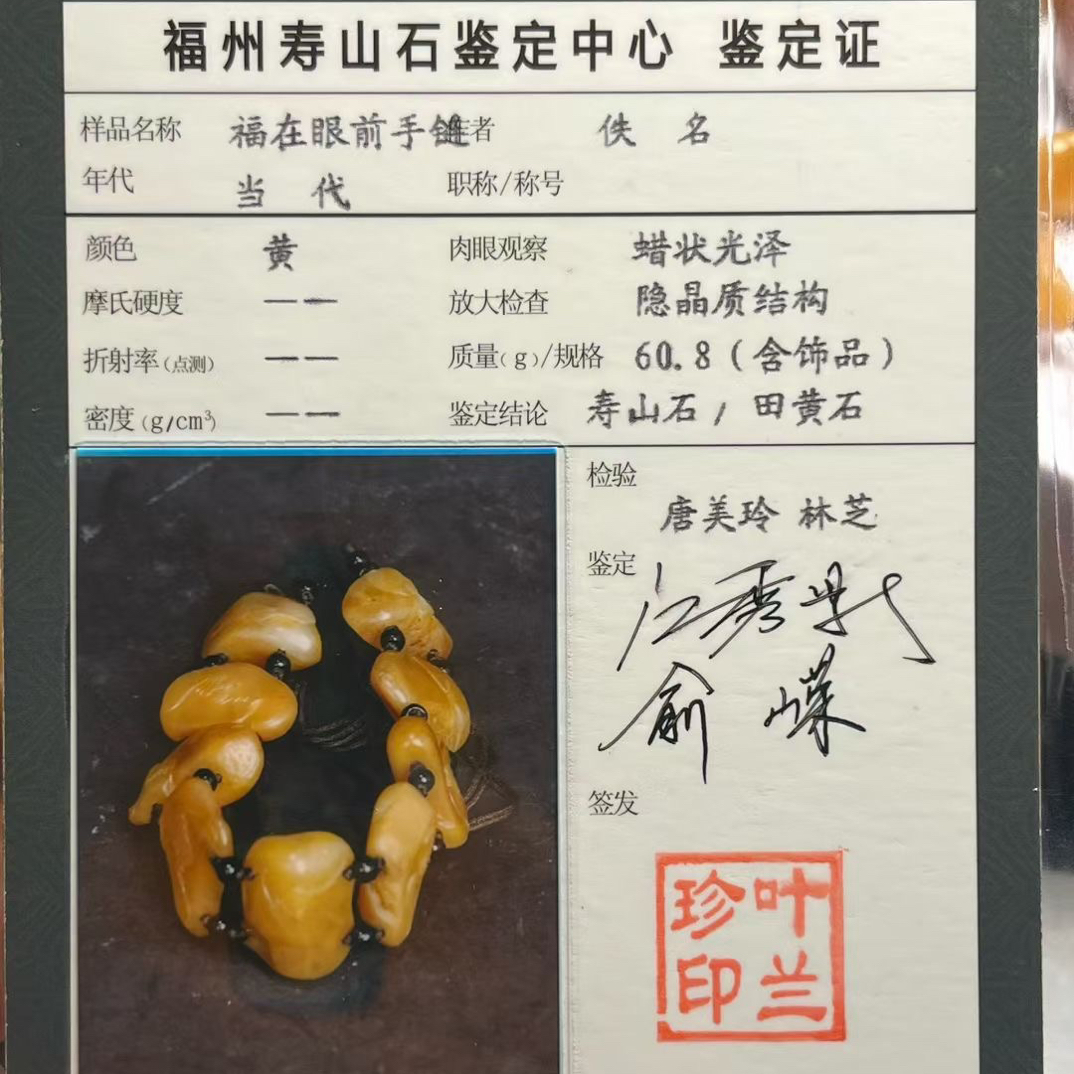 福州寿山石鉴定中心 鉴定证
样品名称 福在眼前手链 作者 佚 名
年代 当 代 职称/称号
颜色 黄 肉眼观察 蜡状光泽
摩氏硬度 —— 放大检查 隐晶质结构
折射率(点测) —— 质量(g)/规格 60.8(含饰品)
密度(g/cm³) —— 鉴定结论 寿山石,田黄石
检验
唐美玲 林芝
鉴定
俞 嵘
签发
叶兰珍印